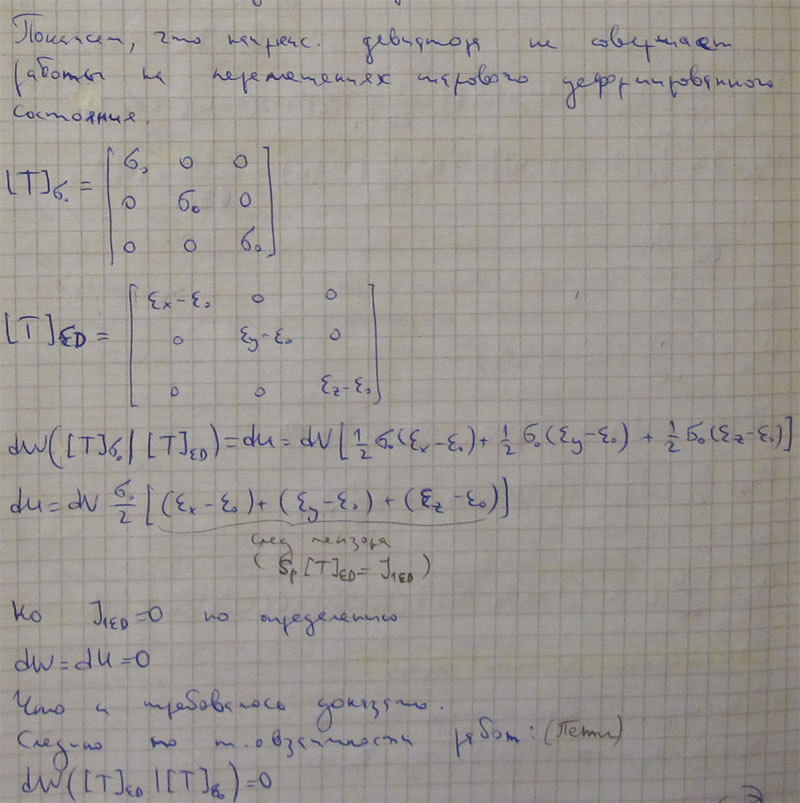 Покажем, что напряс. девиатора не совершает
работы на перемещениях шарового деформированного
состояния.
[T]σ₀ = [σ₀ 0 0
0 σ₀ 0
0 0 σ₀]
[T]εD = [εx-ε₀ 0 0
0 εy-ε₀ 0
0 0 εz-ε₀]
dW([T]σ₀ | [T]εD) = dU = dV [1/2 σ₀(εx-ε₀) + 1/2 σ₀(εy-ε₀) + 1/2 σ₀(εz-ε₀)]
dU = dV σ₀/2 [(εx-ε₀) + (εy-ε₀) + (εz-ε₀)]
след тензора
(Sp [T]εD = J1εD)
Но J1εD = 0 по определению
dW = dU = 0
Что и требовалось доказать.
След-но по т. о взаимности работ: (Бетти)
dW([T]εD | [T]σ₀) = 0